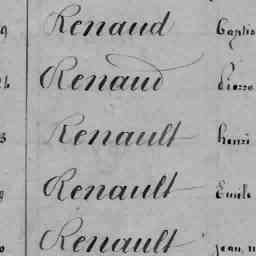 Renaud Baptis
Renaud Pierre
Renault henri
Renault Emile
Renault jean